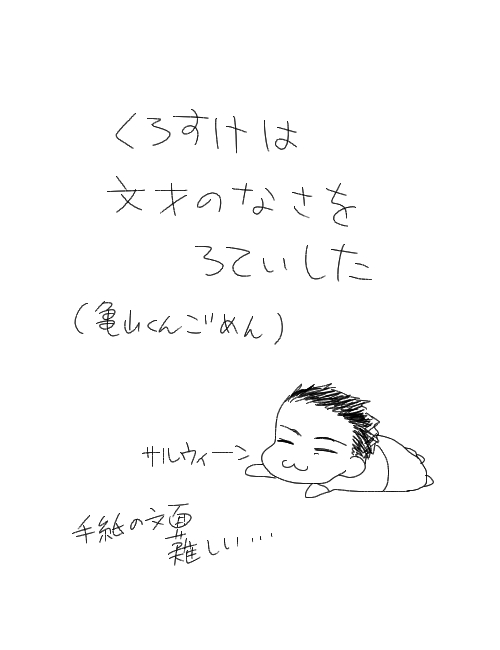 くろすけは
文才のなさを
ろていした
(亀山くんごめん)
サルウィーン
手紙の文面
難しい…